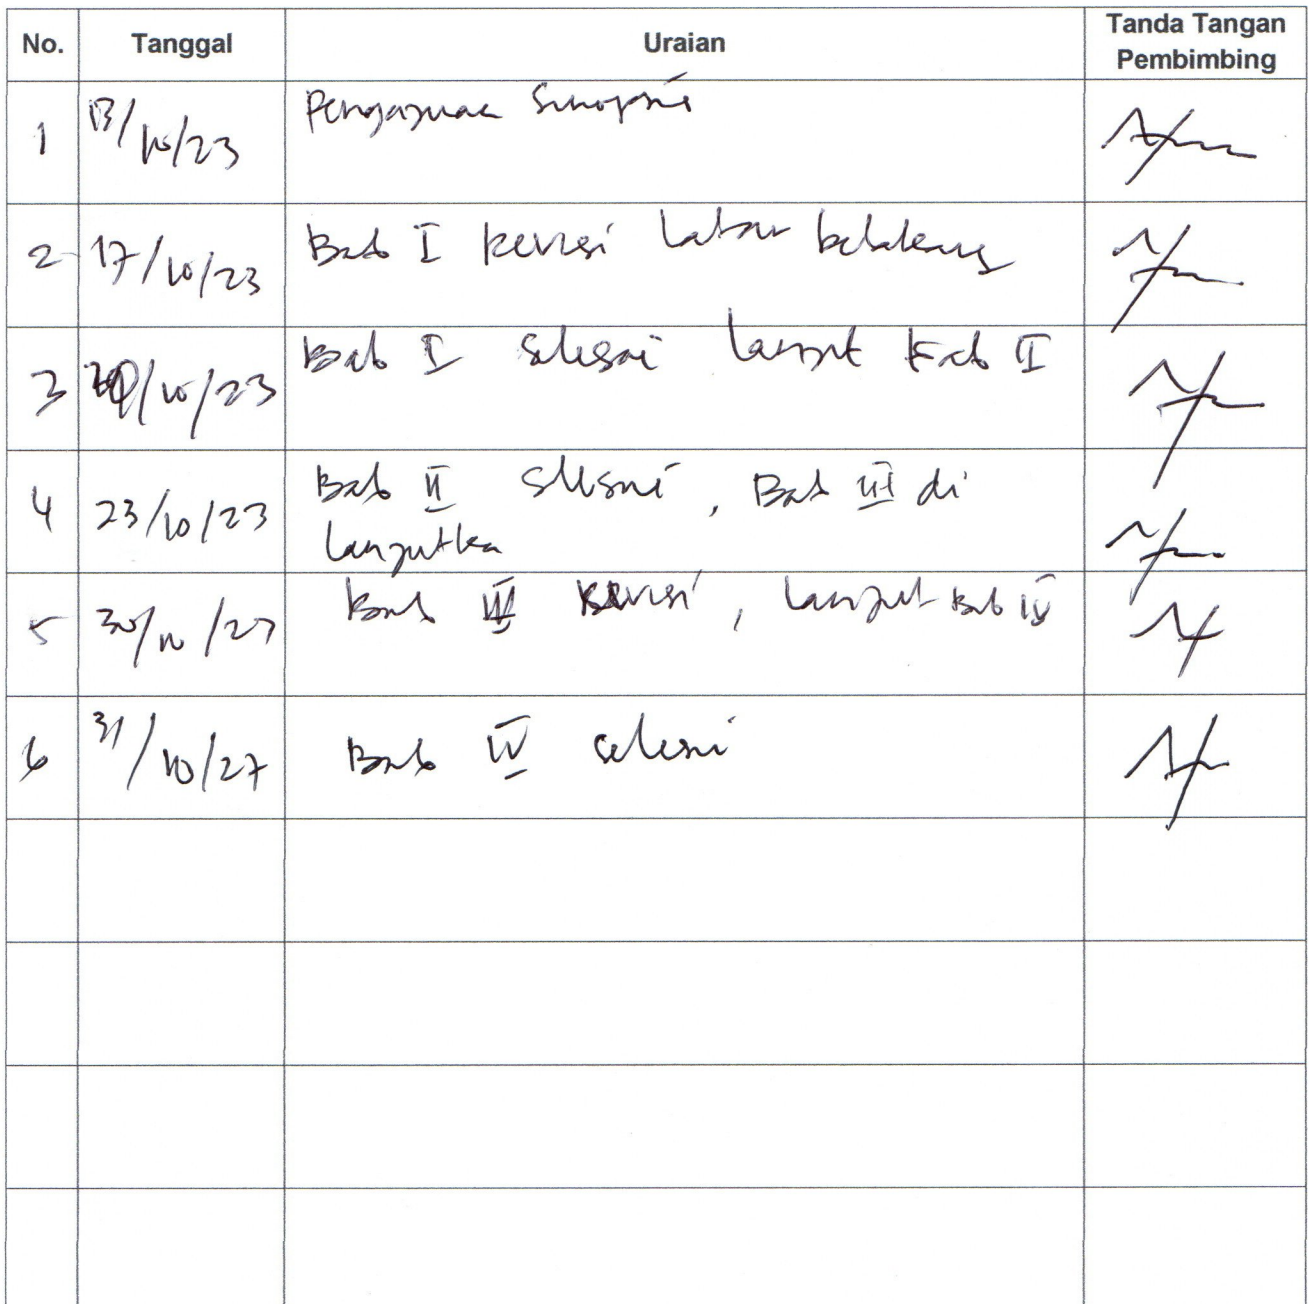 No. Tanggal Uraian Tanda Tangan
Pembimbing
1 13/10/23 Pengajuan Sinopsis
2 17/10/23 Bab I Revisi Latar belakang
3 /10/23 Bab I selesai lanjut Bab II
4 23/10/23 Bab II selesai, Bab III di
lanjutka
5 30/10/23 Bab III Revisi, lanjut Bab IV
6 31/10/23 Bab IV selesai